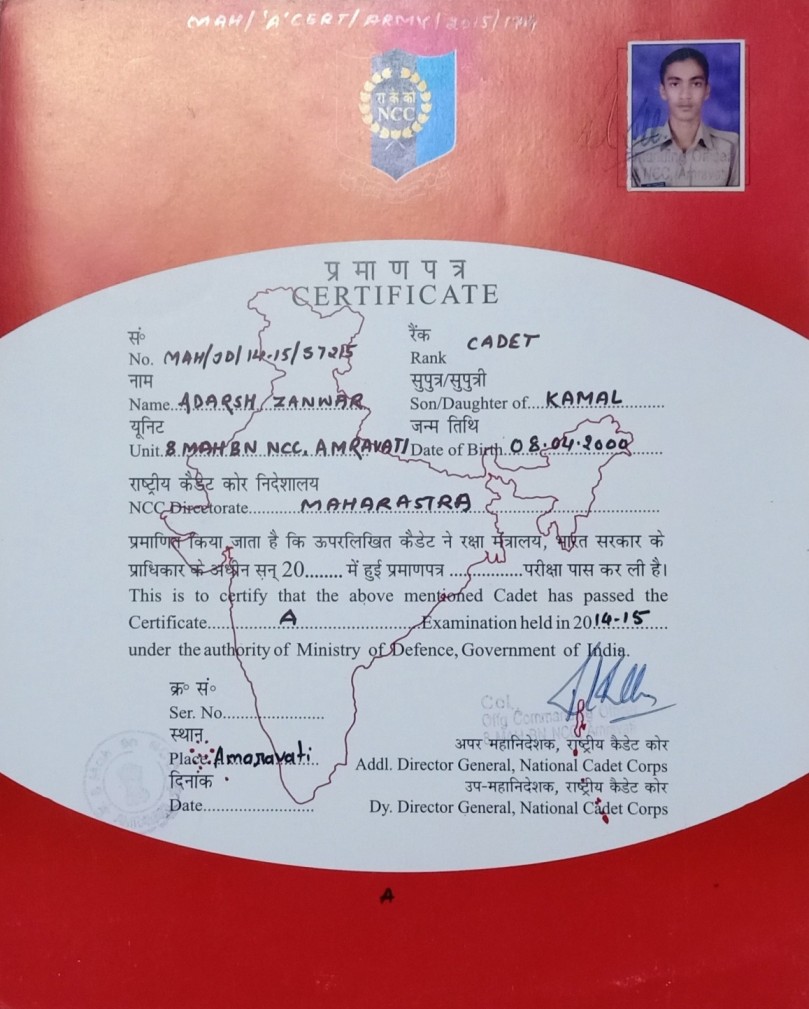 MAH/'A'CERT/ARMY/2015/
रा के को
NCC
Commanding Officer
NCC, Amravati
प्रमाणपत्र
CERTIFICATE
सं॰
No. MAH/JD/14-15/57215
रैंक
Rank CADET
नाम
Name..ADARSH ZANWAR
सुपुत्र/सुपुत्री
Son/Daughter of....KAMAL..........
यूनिट
Unit.8 MAH BN NCC. AMRAVATI
जन्म तिथि
Date of Birth..08.04.2000
राष्ट्रीय कैडेट कोर निदेशालय
NCC Directorate..........MAHARASTRA..........
प्रमाणित किया जाता है कि ऊपरलिखित कैडेट ने रक्षा मंत्रालय, भारत सरकार के
प्राधिकार के अधीन सन् 20........ में हुई प्रमाणपत्र ...............परीक्षा पास कर ली है।
This is to certify that the above mentioned Cadet has passed the
Certificate..........A..........Examination held in 2014-15
under the authority of Ministry of Defence, Government of India.
क्र॰ सं॰
Ser. No..................
Col,
Offg Commanding
8 MAH BN NCC
स्थान
Place.Amaravati..
अपर महानिदेशक, राष्ट्रीय कैडेट कोर
Addl. Director General, National Cadet Corps
दिनांक
उप-महानिदेशक, राष्ट्रीय कैडेट कोर
Date....................
Dy. Director General, National Cadet Corps
A